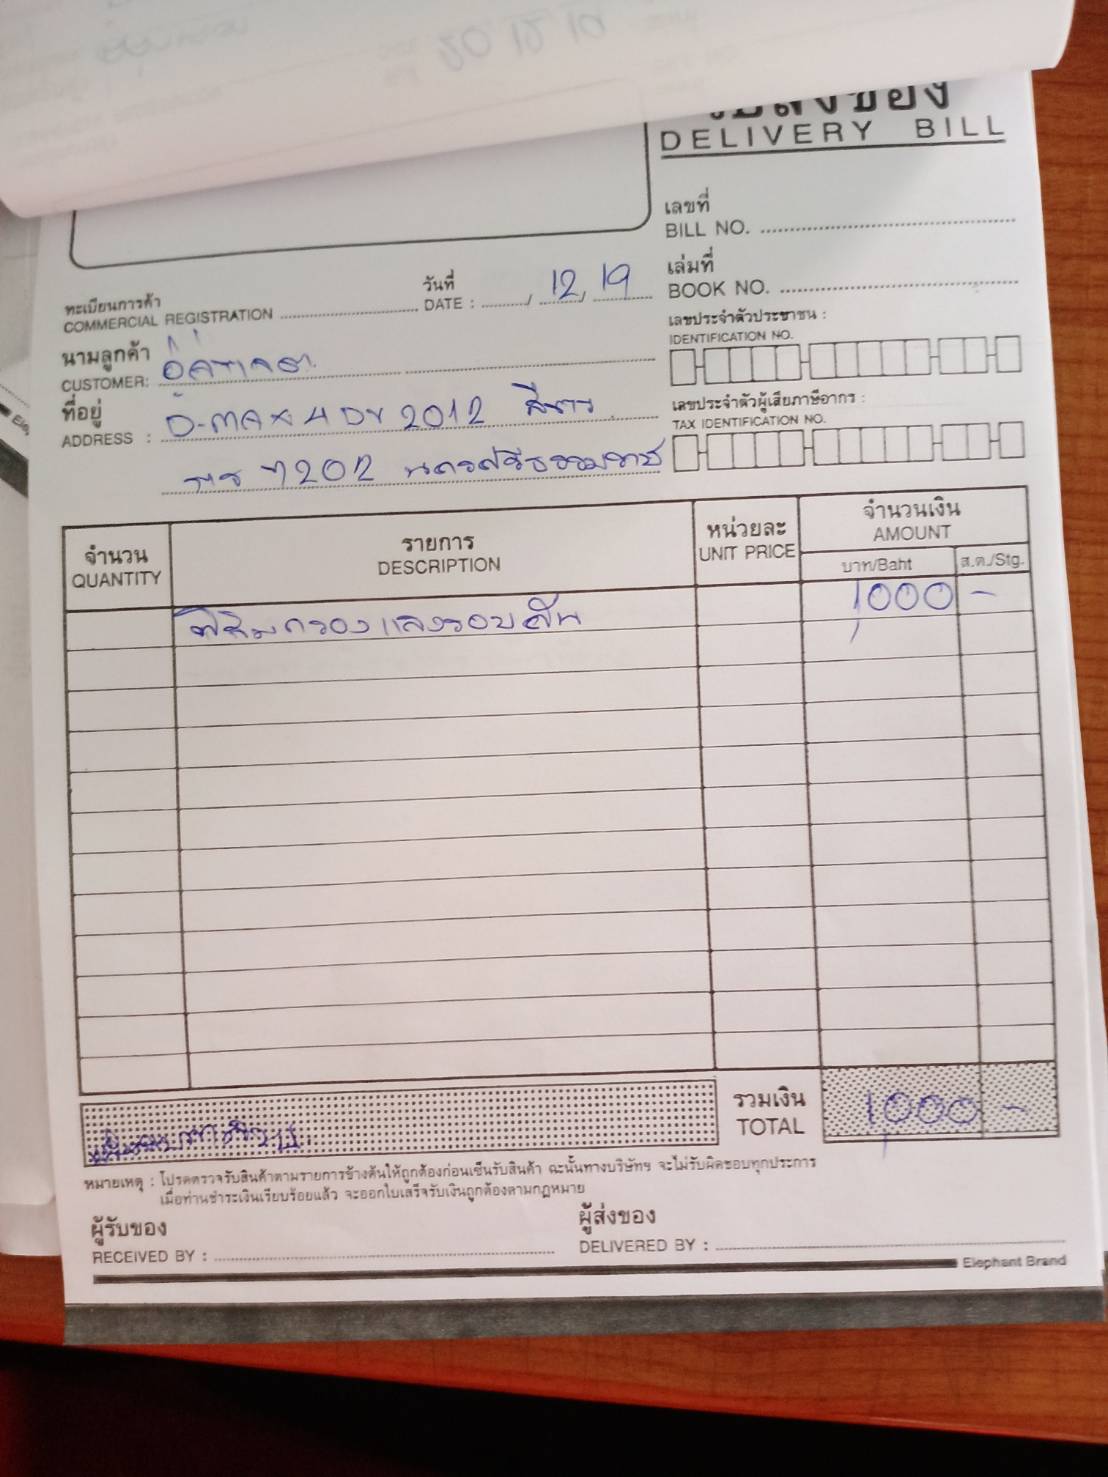 ใบส่งของ
DELIVERY BILL
เลขที่
BILL NO.
เล่มที่
BOOK NO.
ทะเบียนการค้า
COMMERCIAL REGISTRATION
วันที่
DATE : / 12, 19
เลขประจำตัวประชาชน :
IDENTIFICATION NO.
นามลูกค้า
CUSTOMER:
ที่อยู่
ADDRESS : D-MAX 4 DR 2012
7202 นครศรีธรรมราช
เลขประจำตัวผู้เสียภาษีอากร :
TAX IDENTIFICATION NO.
จำนวน
QUANTITY
รายการ
DESCRIPTION
หน่วยละ
UNIT PRICE
จำนวนเงิน
AMOUNT
บาท/Baht
ส.ต./Stg.
ฟิล์มกรองแสงรอบคัน 1,000 -
รวมเงิน
TOTAL
1,000 -
หมายเหตุ : โปรดตรวจรับสินค้าตามรายการข้างต้นให้ถูกต้องก่อนเซ็นรับสินค้า ฉะนั้นทางบริษัทฯ จะไม่รับผิดชอบทุกประการ
เมื่อท่านชำระเงินเรียบร้อยแล้ว จะออกใบเสร็จรับเงินถูกต้องตามกฎหมาย
ผู้รับของ
RECEIVED BY :
ผู้ส่งของ
DELIVERED BY :
Elephant Brand